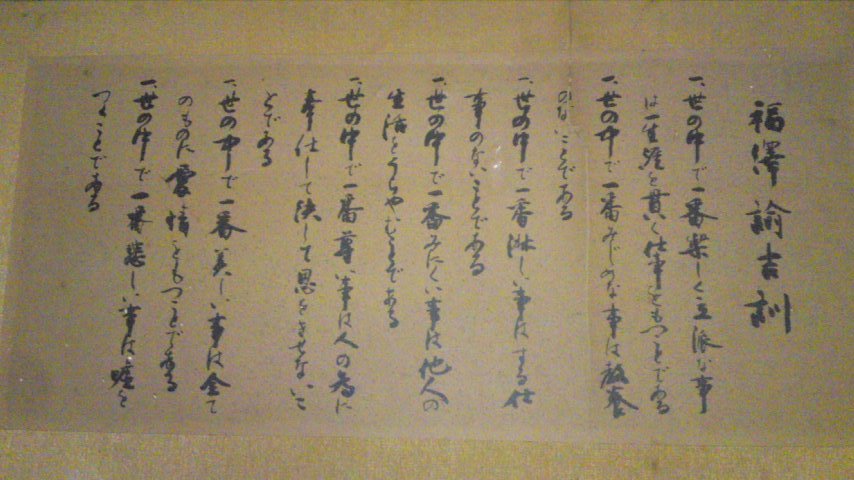 福澤諭吉訓
一、世の中で一番楽しく立派な事
は一生涯を貫く仕事をもつことである
一、世の中で一番みじめな事は教養
のないことである
一、世の中で一番淋しい事はする仕
事のないことである
一、世の中で一番みにくい事は他人の
生活をうらやむことである
一、世の中で一番尊い事は人の為に
奉仕して決して恩をきせないこ
とである
一、世の中で一番美しい事は全て
のものに愛情をもつことである
一、世の中で一番悲しい事は嘘を
つくことである